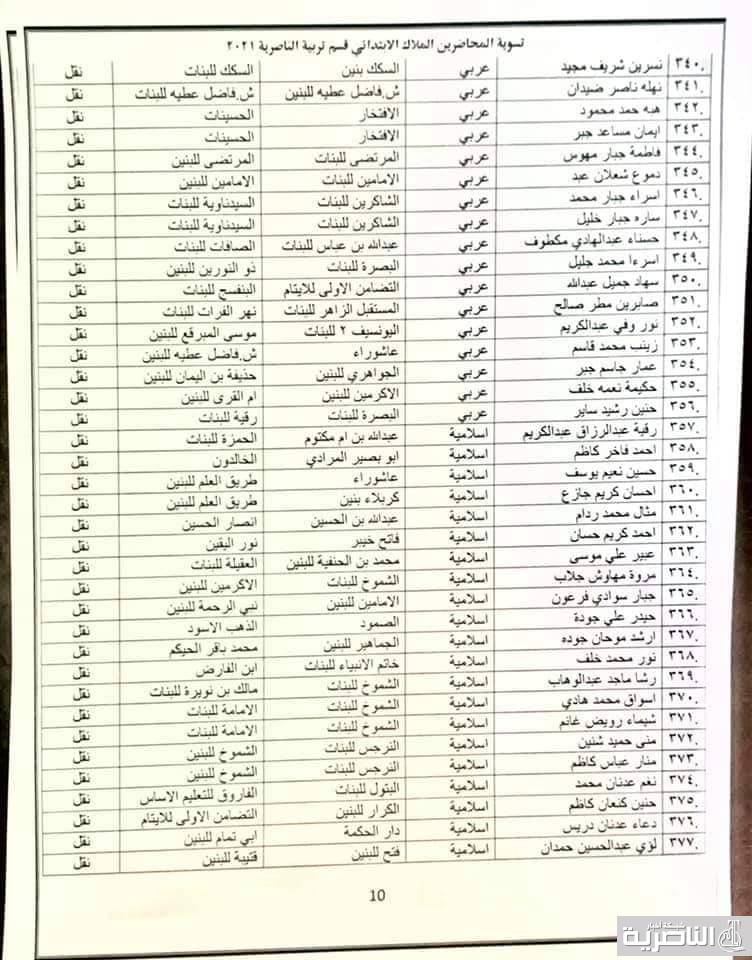 تسوية المحاضرين الملاك الابتدائي قسم تربية الناصرية ٢٠٢١
٣٤٠. نسرين شريف مجيد عربي السكك بنين السكك للبنات نقل
٣٤١. نهله ناصر ضيدان عربي ش.فاضل عطيه للبنين ش.فاضل عطيه للبنات نقل
٣٤٢. هبه حمد محمود عربي الافتخار الحسينات نقل
٣٤٣. ايمان مساعد جبر عربي الافتخار الحسينات نقل
٣٤٤. فاطمة جبار مهوس عربي المرتضى للبنات المرتضى للبنين نقل
٣٤٥. دموع شعلان عبد عربي الامامين للبنات الامامين للبنين نقل
٣٤٦. اسراء جبار محمد عربي الشاكرين للبنات السيدناوية للبنات نقل
٣٤٧. ساره جبار خليل عربي الشاكرين للبنات السيدناوية للبنات نقل
٣٤٨. حسناء عبدالهادي مكطوف عربي عبدالله بن عباس للبنات الصافات للبنات نقل
٣٤٩. اسرءا محمد جليل عربي البصرة للبنات ذو النورين للبنين نقل
٣٥٠. سهاد جميل عبدالله عربي التضامن الاولى للايتام البنفسج للبنات نقل
٣٥١. صابرين مطر صالح عربي المستقبل الزاهر للبنات نهر الفرات للبنات نقل
٣٥٢. نور وفي عبدالكريم عربي اليونسيف ٢ للبنات موسى المبرقع للبنين نقل
٣٥٣. زينب محمد قاسم عربي عاشوراء ش.فاضل عطيه للبنين نقل
٣٥٤. عمار جاسم جبر عربي الجواهري للبنين حذيفة بن اليمان للبنين نقل
٣٥٥. حكيمة نعمه خلف عربي الاكرمين للبنين ام القرى للبنين نقل
٣٥٦. حنين رشيد ساير عربي البصرة للبنات رقية للبنات نقل
٣٥٧. رقية عبدالرزاق عبدالكريم اسلامية عبدالله بن ام مكتوم الحمزة للبنات نقل
٣٥٨. احمد فاخر كاظم اسلامية ابو بصير المرادي الخالدون نقل
٣٥٩. حسين نعيم يوسف اسلامية عاشوراء طريق العلم للبنين نقل
٣٦٠. احسان كريم جازع اسلامية كربلاء بنين طريق العلم للبنين نقل
٣٦١. مثال محمد ردام اسلامية عبدالله بن الحسين انصار الحسين نقل
٣٦٢. احمد كريم حسان اسلامية فاتح خيبر نور اليقين نقل
٣٦٣. عبير علي موسى اسلامية محمد بن الحنفية للبنين العقيلة للبنات نقل
٣٦٤. مروة مهاوش جلاب اسلامية الشموخ للبنات الاكرمين للبنين نقل
٣٦٥. جبار سوادي فرعون اسلامية الامامين للبنين نبي الرحمة للبنين نقل
٣٦٦. حيدر علي جودة اسلامية الصمود الذهب الاسود نقل
٣٦٧. ارشد موحان جوده اسلامية الجماهير للبنين محمد باقر الحيكم نقل
٣٦٨. نور محمد خلف اسلامية خاتم الانبياء للبنات ابن الفارض نقل
٣٦٩. رشا ماجد عبدالوهاب اسلامية الشموخ للبنات مالك بن نويرة للبنات نقل
٣٧٠. اسواق محمد هادي اسلامية الشموخ للبنات الامامة للبنات نقل
٣٧١. شيماء رويض غانم اسلامية الشموخ للبنات الامامة للبنات نقل
٣٧٢. منى حميد شنين اسلامية النرجس للبنات الشموخ للبنين نقل
٣٧٣. منار عباس كاظم اسلامية النرجس للبنات الشموخ للبنين نقل
٣٧٤. نغم عدنان محمد اسلامية البتول للبنات الفاروق للتعليم الاساس نقل
٣٧٥. حنين كنعان كاظم اسلامية الكرار للبنين التضامن الاولى للايتام نقل
٣٧٦. دعاء عدنان دريس اسلامية دار الحكمة ابي تمام للبنين نقل
٣٧٧. لؤي عبدالحسين حمدان اسلامية فتح للبنين قتيبة للبنين نقل
10
شبكة اخبار
الناصرية